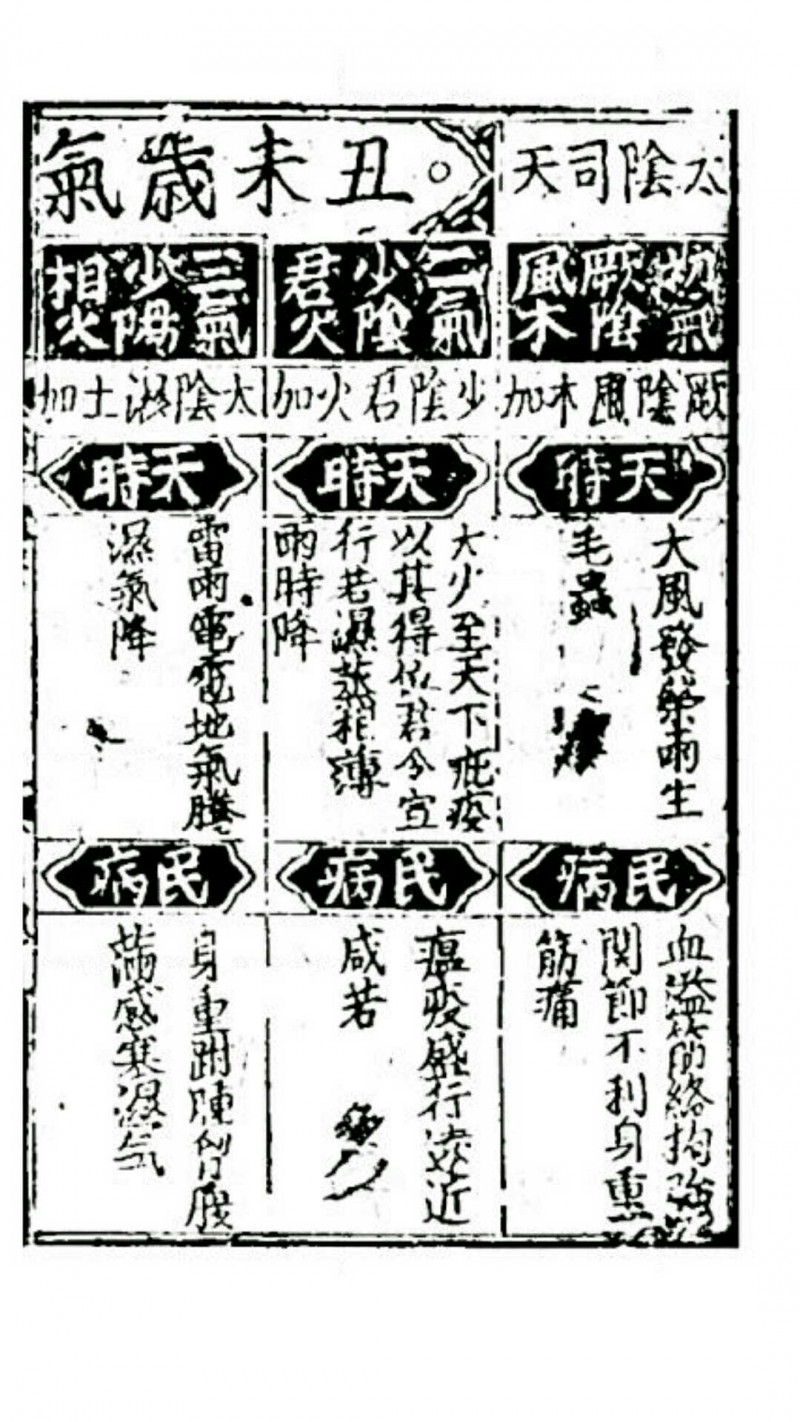 太陰司天
丑未歲氣
初氣
厥陰
風木
厥陰風木加
天時
大風發榮雨生
毛蟲
民病
血溢筋絡拘強
関節不利身重
筋痛
二氣
少陰
君火
少陰君火加
天時
大火至天下疵疫
以其得位君令宣
行若濕蒸相薄
雨時降
民病
瘟疫盛行遠近
咸若
三氣
少陽
相火
太陰濕土加
天時
雷雨電雹地氣騰
濕氣降
民病
身重跗腫胸腹
滿感寒濕气